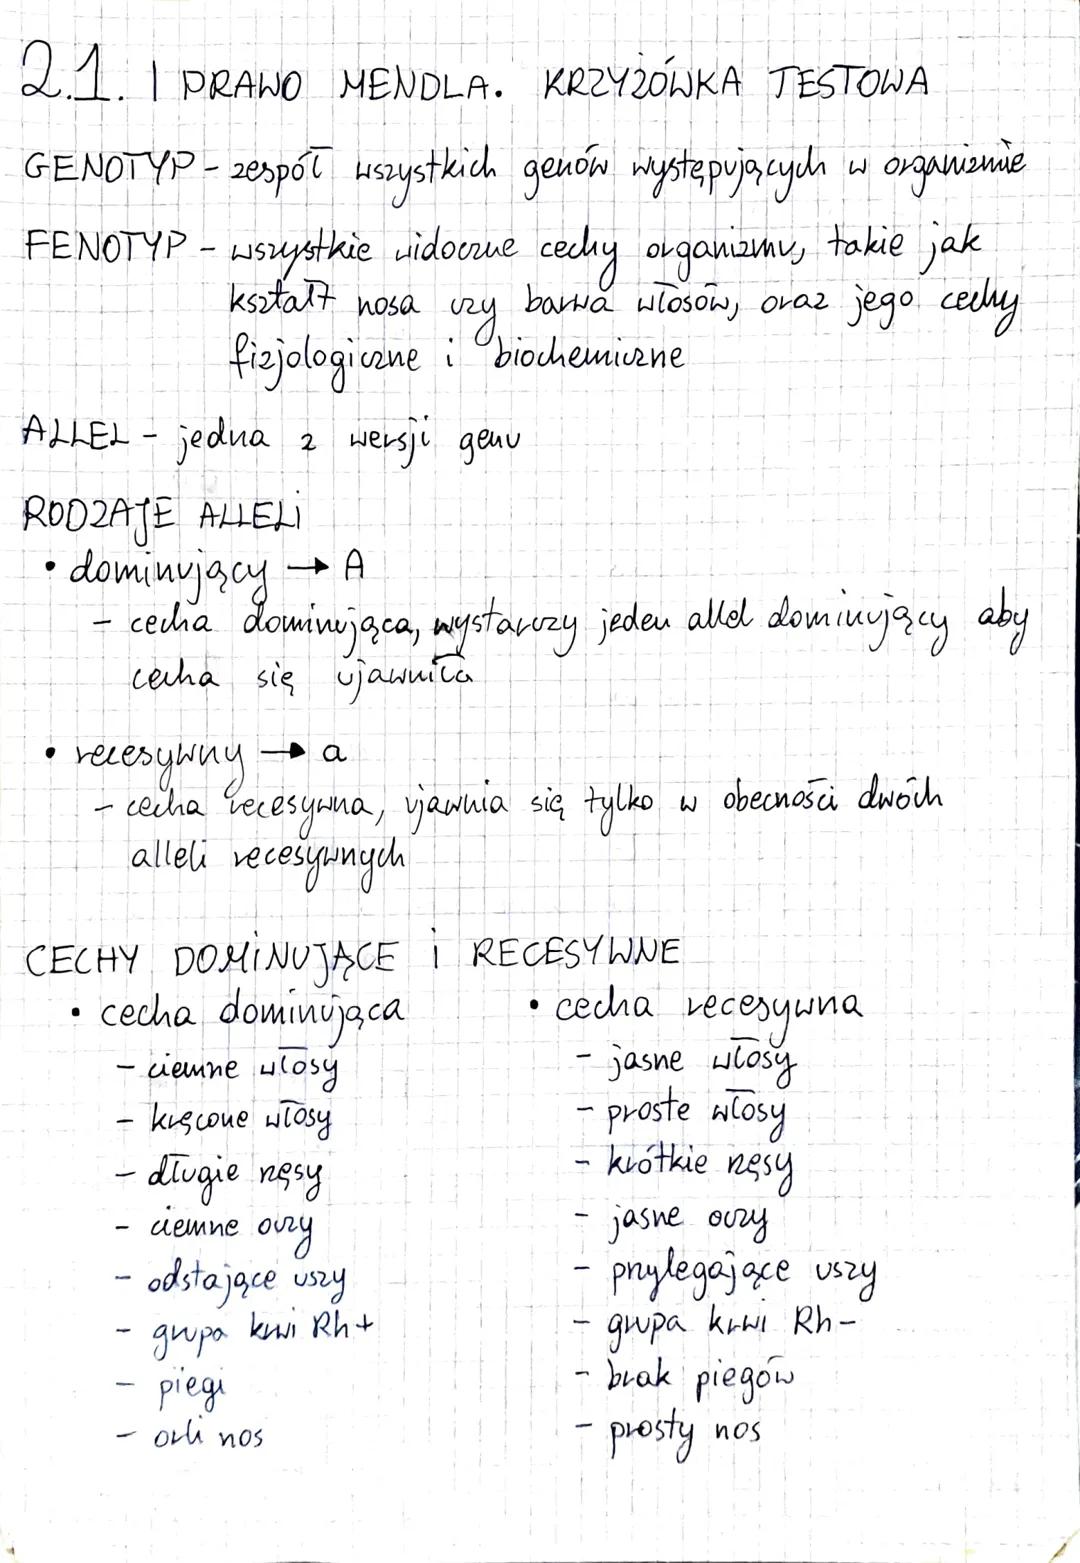 2.1. I PRAWO MENDLA. KRZYŻÓWKA TESTOWA
GENOTYP - zespół wszystkich genów występujących w organizmie
FENOTYP - wszystkie widoczne cechy organizmu, takie jak
kształt nosa czy barwa włosów, oraz jego cechy
fizjologiczne i biochemiczne
ALLEL - jedna z wersji genu
RODZAJE ALLELI
• dominujący → A
- cecha dominująca, wystarczy jeden allel dominujący aby
cecha się ujawniła
• recesywny → a
- cecha recesywna, ujawnia się tylko w obecności dwóch
alleli recesywnych
CECHY DOMINUJĄCE I RECESYWNE
• cecha dominująca
- ciemne włosy
- kręcone włosy
- długie rzęsy
- ciemne oczy
- odstające uszy
- grupa krwi Rh+
- piegi
- orli nos
• cecha recesywna
- jasne włosy
- proste włosy
- krótkie rzęsy
- jasne oczy
- przylegające uszy
- grupa krwi Rh-
- brak piegów
- prosty nos